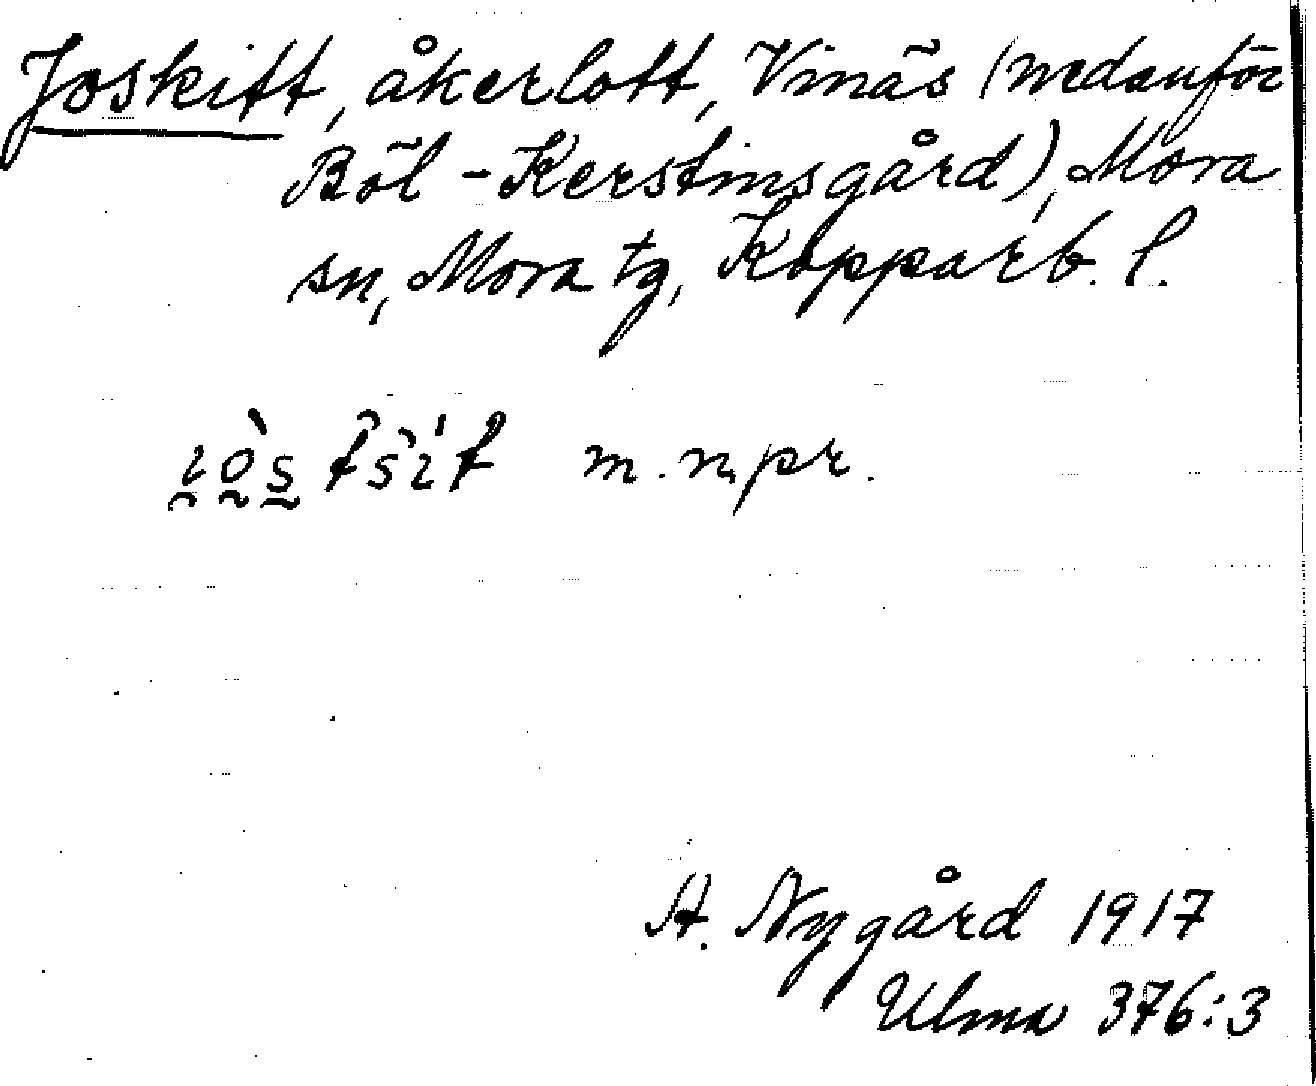 Joskitt, åkerlott, Vinäs (nedanför
Böl-Kerstinsgård), Mora
sn, Mora tg, Kopparb. l.
m. npr.
A. Nygård 1917
Ulma 376:3